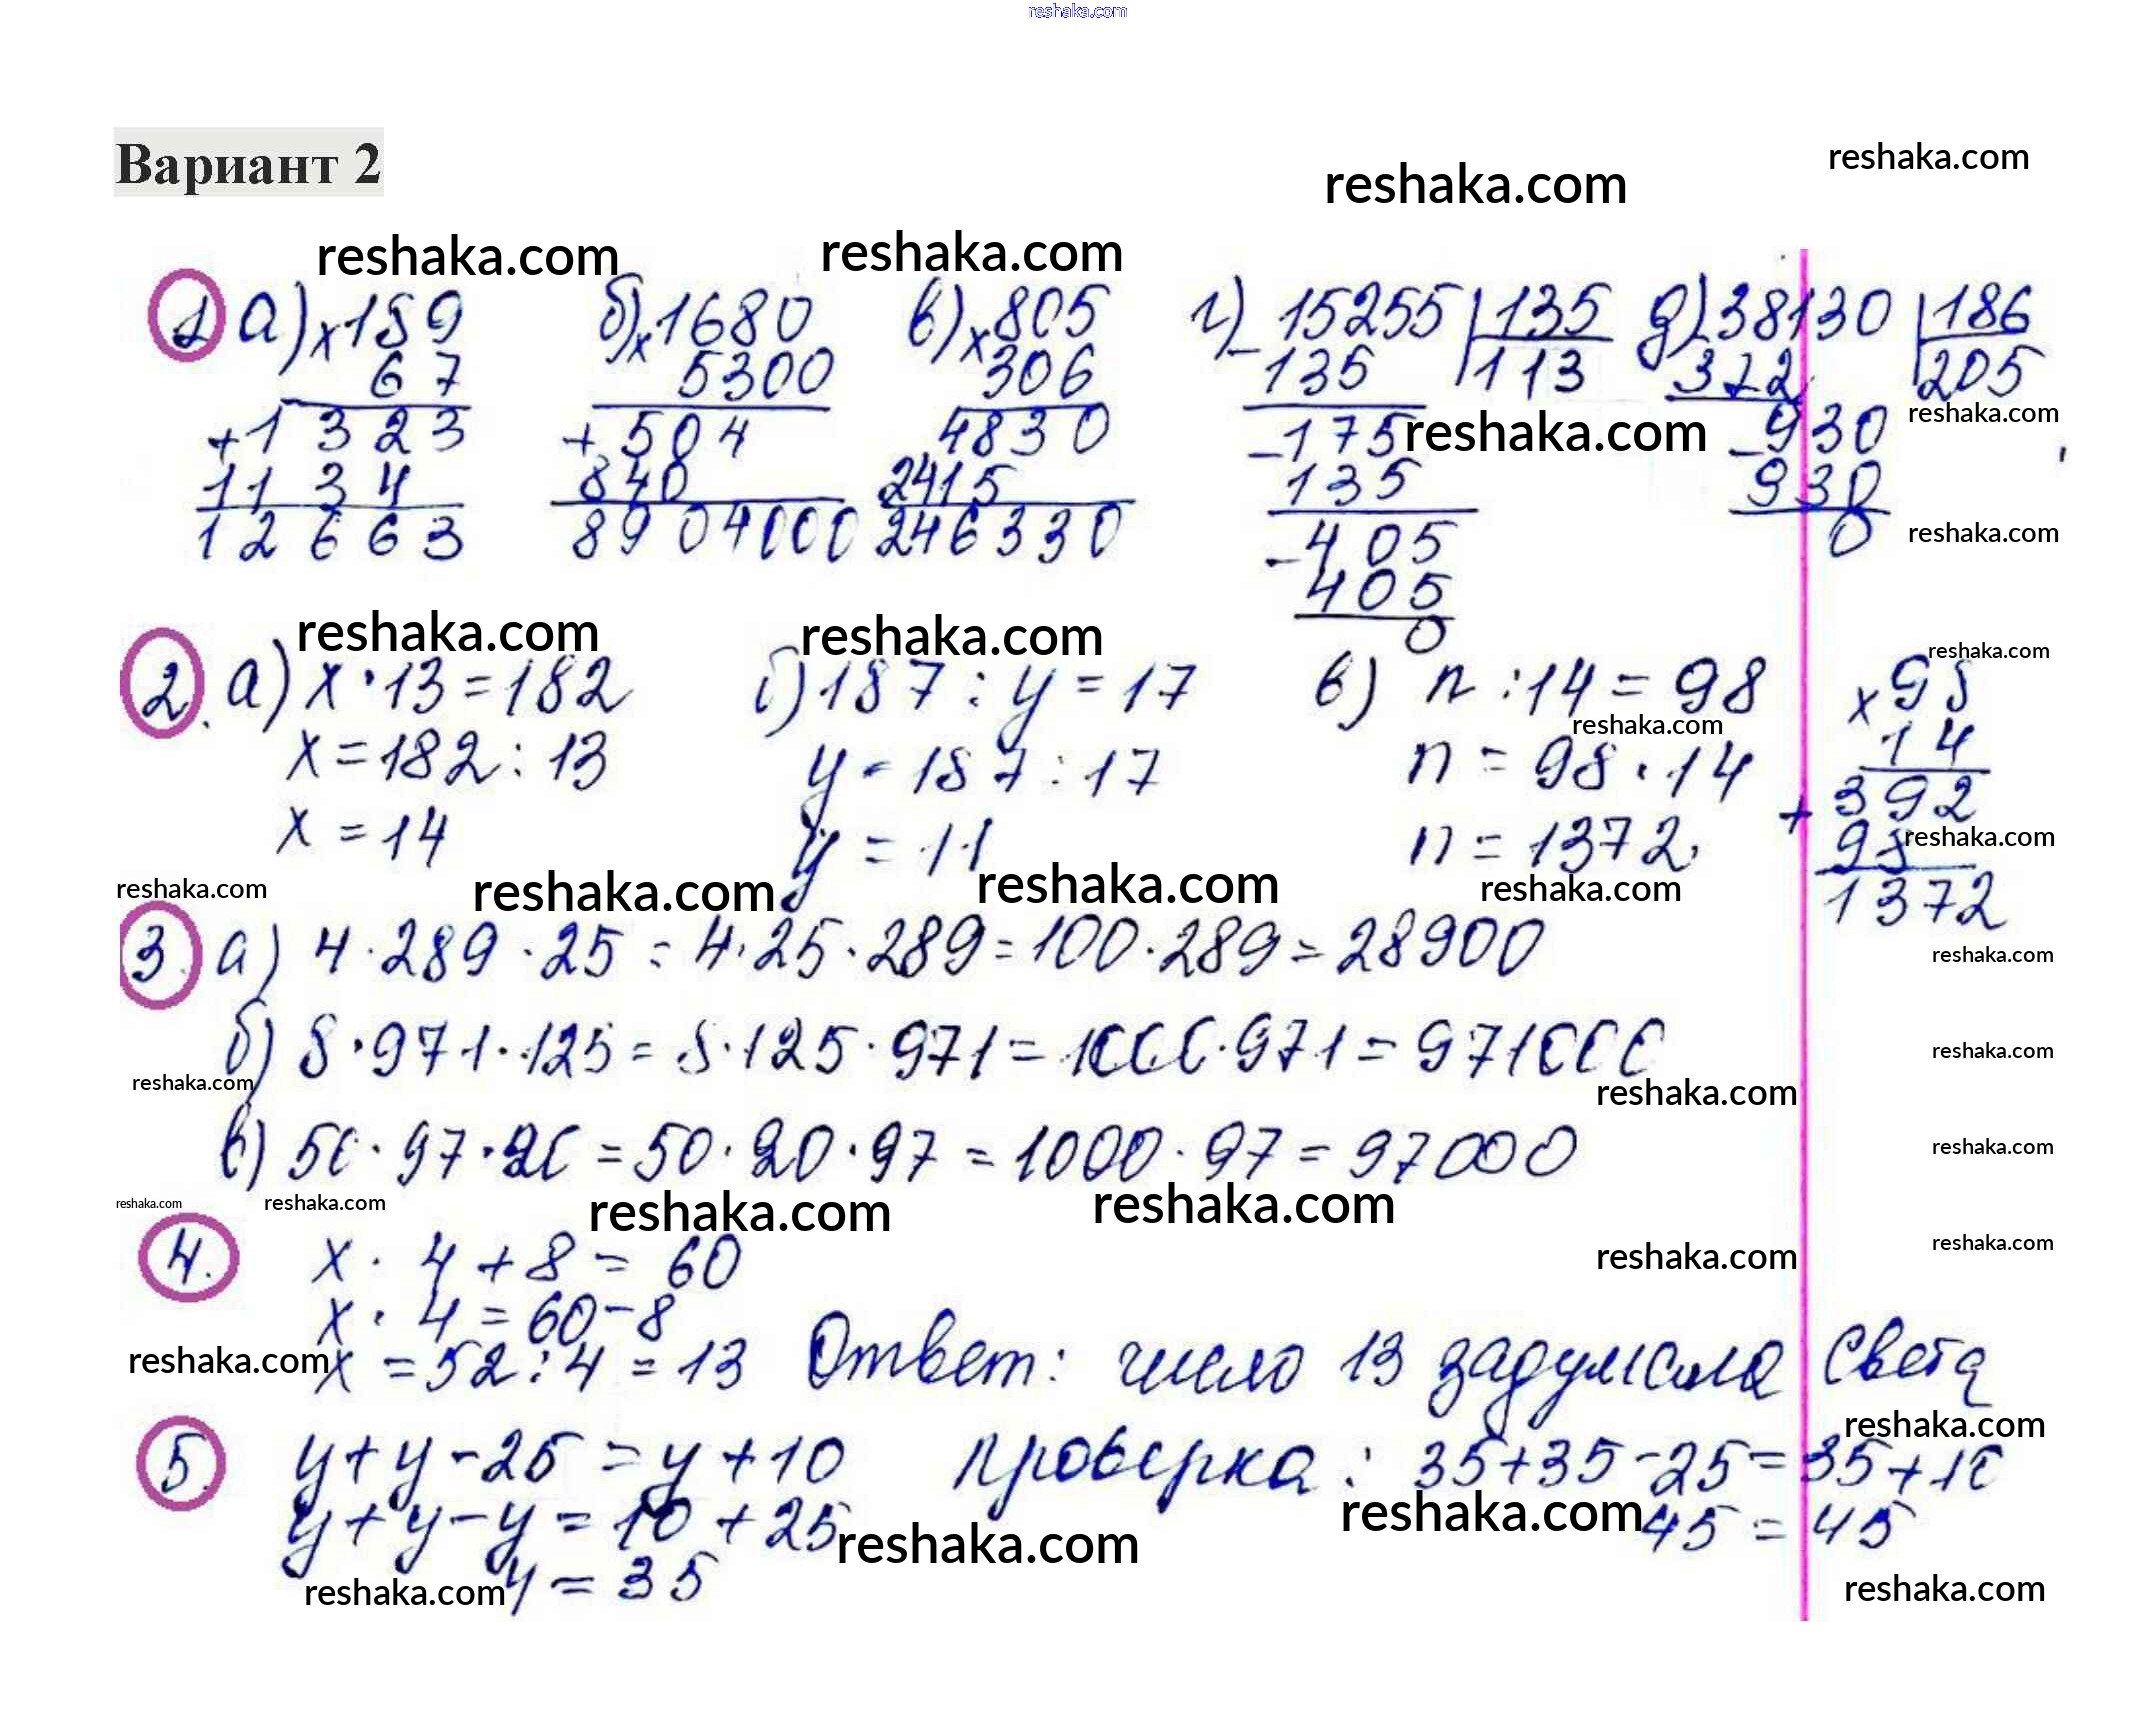 reshaka.com
Вариант 2
reshaka.com
reshaka.com
reshaka.com
reshaka.com
1 а) × 189
67
+ 1323
1134
12663
б) × 1680
5300
+ 504
840
8904000
в) × 805
306
4830
2415
246330
г) 15255 | 135
- 135 | 113
- 175
135
- 405
405
0
reshaka.com
д) 38130 | 186
372 | 205
- 930
930
0
reshaka.com
reshaka.com
reshaka.com
reshaka.com
reshaka.com
2. а) x · 13 = 182
x = 182 : 13
x = 14
б) 187 : y = 17
y = 187 : 17
y = 11
в) n : 14 = 98
reshaka.com
n = 98 · 14
n = 1372,
× 98
14
+ 392
98
1372
reshaka.com
reshaka.com
reshaka.com
reshaka.com
reshaka.com
3. а) 4 · 289 · 25 = 4 · 25 · 289 = 100 · 289 = 28900
reshaka.com
б) 8 · 971 · 125 = 8 · 125 · 971 = 1000 · 971 = 971000
reshaka.com
reshaka.com
reshaka.com
в) 50 · 97 · 20 = 50 · 20 · 97 = 1000 · 97 = 97000
reshaka.com
reshaka.com
reshaka.com
reshaka.com
reshaka.com
4. x · 4 + 8 = 60
reshaka.com
reshaka.com
x · 4 = 60 - 8
reshaka.com
x = 52 : 4 = 13 Ответ: число 13 задумала Света
reshaka.com
5. y + y - 25 = y + 10 проверка: 35 + 35 - 25 = 35 + 10
y + y - y = 10 + 25
reshaka.com
reshaka.com
45 = 45
y = 35
reshaka.com
reshaka.com